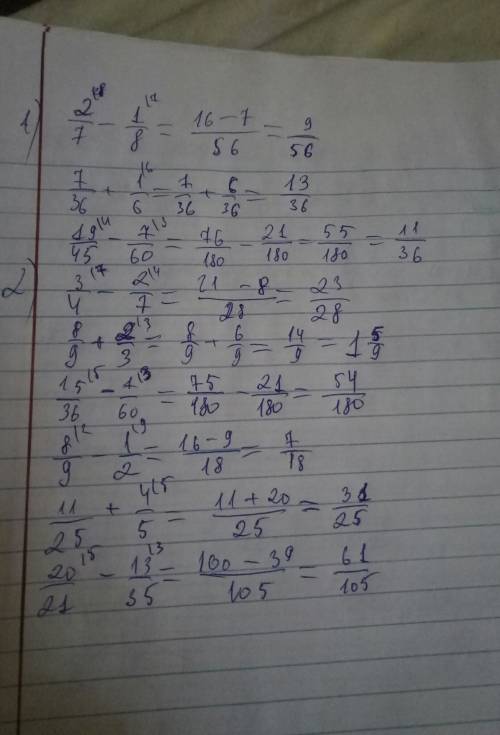 1) 2/7 \8 − 1/8 \7 = (16 − 7)/56 = 9/56
7/36 + 1/6 \6 = 7/36 + 6/36 = 13/36
19/45 \4 − 7/60 \3 = 76/180 − 21/180 = 55/180 = 11/36
2) 3/4 \7 − 2/7 \4 = (21 − 8)/28 = 23/28
8/9 + 2/3 \3 = 8/9 + 6/9 = 14/9 = 1 5/9
15/36 \5 − 7/60 \3 = 75/180 − 21/180 = 54/180
8/9 \2 − 1/2 \9 = (16 − 9)/18 = 7/18
11/25 + 4/5 \5 = (11 + 20)/25 = 31/25
20/21 \5 − 13/35 \3 = (100 − 39)/105 = 61/105